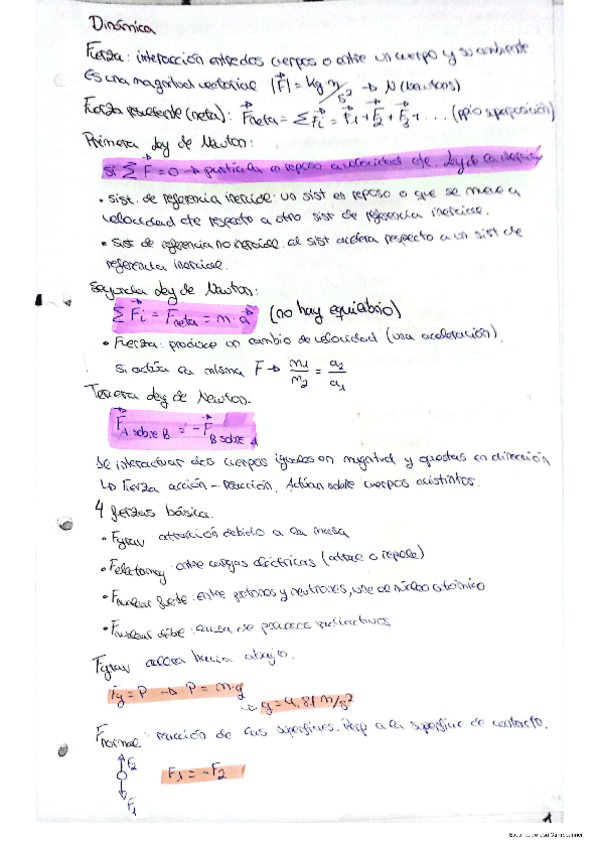 Dinámica
Fuerza: interacción entre dos cuerpos o entre un cuerpo y su ambiente
Es una magnitud vectorial |F⃗| = kg m/s² → N (Newtons)
Fuerza resultante (neta): F⃗neta = ΣF⃗i = F⃗1 + F⃗2 + F⃗3 + ... (ppio superposición)
Primera Ley de Newton:
Si ΣF⃗ = 0 → partícula en reposo o velocidad cte. Ley de
• sist. de referencia inercial: un sist en reposo o que se mueve a
velocidad cte respecto a otro sist de referencia inercial.
• Sist de referencia no inercial. el sist acelera respecto a un sist de
referencia inercial.
Segunda Ley de Newton:
ΣF⃗i = F⃗neta = m·a⃗ (no hay equilibrio)
• Fuerza: produce un cambio de velocidad (una aceleración).
Si actúa la misma F → m1/m2 = a2/a1
Tercera Ley de Newton.
F⃗A sobre B = -F⃗B sobre A
Se interactuar dos cuerpos iguales en magnitud y opuestas en dirección
↳ Fuerza acción - reacción. Actúan sobre cuerpos distintos.
4 fuerzas básica.
• Fgrav atracción debido a la masa
• Felectomag entre cargas eléctricas (atrae o repele)
• Fnuclear fuerte: entre protones y neutrones, une de núcleo atómico
• Fnuclear débil: causa de procesos radiactivos
Fgrav acelera hacia abajo.
Fg = P → P = m·g
→ g = 9,81 m/s²
Fnormal: reacción de las superficies. Perp a la superficie de contacto.
F⃗2
F1 = -F2
F⃗1
1